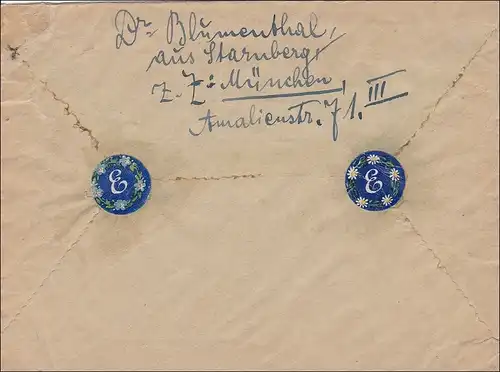 Dr. Blumenthal,
aus Starnberg,
z. Z. München,
Amalienstr. 71. III
E
E